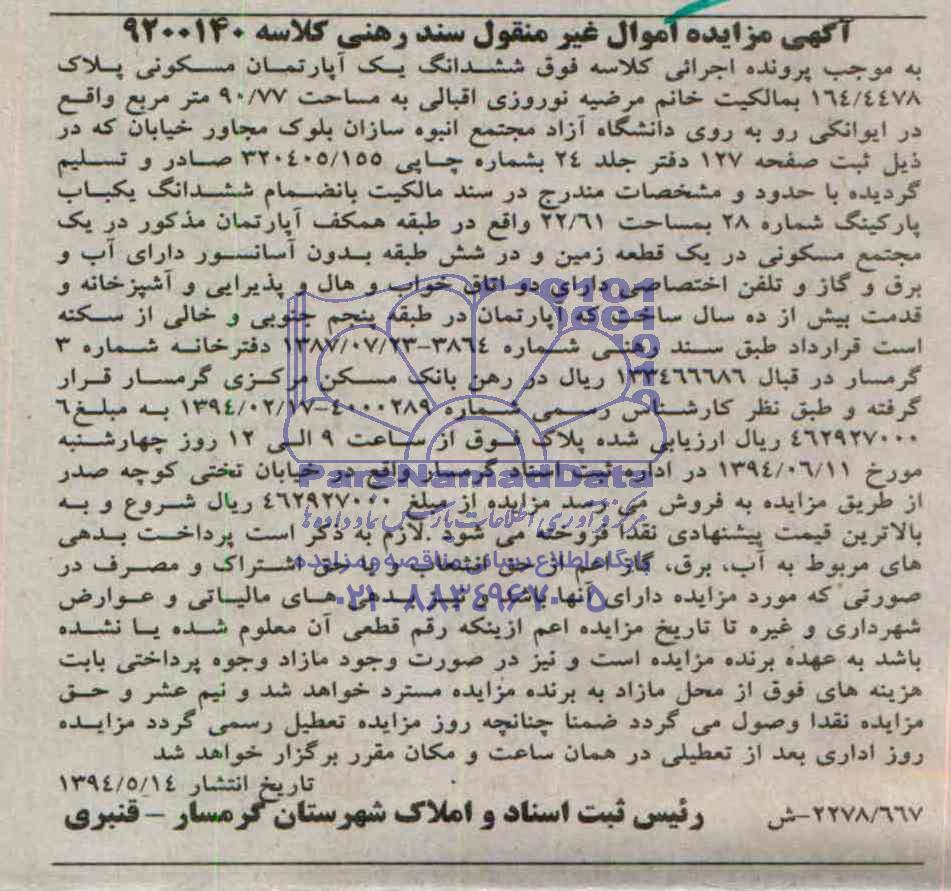 آگهی مزایده اموال غیر منقول سند رهنی کلاسه ۹۲۰۰۱۴۰
به موجب پرونده اجرائی کلاسه فوق ششدانگ یک آپارتمان مسکونی پلاک
۱۶۴/۴۴۷۸ بمالکیت خانم مرضیه نوروزی اقبالی به مساحت ۹۰/۷۷ متر مربع واقع
در ایوانکی رو به روی دانشگاه آزاد مجتمع انبوه سازان بلوک مجاور خیابان که در
ذیل ثبت صفحه ۱۲۷ دفتر جلد ۲۴ بشماره چاپی ۳۲۰۴۰۵/۱۵۵ صادر و تسلیم
گردیده با حدود و مشخصات مندرج در سند مالکیت بانضمام ششدانگ یکباب
پارکینگ شماره ۲۸ بمساحت ۲۲/۶۱ واقع در طبقه همکف آپارتمان مذکور در یک
مجتمع مسکونی در یک قطعه زمین و در شش طبقه بدون آسانسور دارای آب و
برق و گاز و تلفن اختصاصی دارای دو اتاق خواب و هال و پذیرایی و آشپزخانه و
قدمت بیش از ده سال ساخت که آپارتمان در طبقه پنجم جنوبی و خالی از سکنه
است قرارداد طبق سند رهنی شماره ۳۸۶۴-۱۳۸۷/۰۷/۲۳ دفترخانه شماره ۳
گرمسار در قبال ۱۳۳۴۶۶۶۸۶ ریال در رهن بانک مسکن مرکزی گرمسار قرار
گرفته و طبق نظر کارشناس رسمی شماره ۴۰۰۰۲۸۹-۱۳۹۴/۰۲/۱۷ به مبلغ ۶
۴۶۲۹۲۷۰۰۰ ریال ارزیابی شده پلاک فوق از ساعت ۹ الی ۱۲ روز چهارشنبه
مورخ ۱۳۹۴/۰۶/۱۱ در اداره ثبت اسناد گرمسار واقع در خیابان تختی کوچه صدر
از طریق مزایده به فروش می رسد مزایده از مبلغ ۴۶۲۹۲۷۰۰۰ ریال شروع و به
بالاترین قیمت پیشنهادی نقدا فروخته می شود .لازم به ذکر است پرداخت بدهی
های مربوط به آب، برق، گاز اعم از حق انشعاب و یا حق اشتراک و مصرف در
صورتی که مورد مزایده دارای آنها باشد و نیز بدهی های مالیاتی و عوارض
شهرداری و غیره تا تاریخ مزایده اعم ازینکه رقم قطعی آن معلوم شده یا نشده
باشد به عهده برنده مزایده است و نیز در صورت وجود مازاد وجوه پرداختی بابت
هزینه های فوق از محل مازاد به برنده مزایده مسترد خواهد شد و نیم عشر و حق
مزایده نقدا وصول می گردد ضمنا چنانچه روز مزایده تعطیل رسمی گردد مزایده
روز اداری بعد از تعطیلی در همان ساعت و مکان مقرر برگزار خواهد شد
تاریخ انتشار ۱۳۹۴/۵/۱۴
۲۲۷۸/۶۶۷-ش رئیس ثبت اسناد و املاک شهرستان گرمسار - قنبری
ParsNamadData
مرکز فرآوری اطلاعات پارس نماد داده ها
پایگاه اطلاع رسانی مناقصه و مزایده
۰۲۱-۸۸۳۴۹۶۷۰-۵